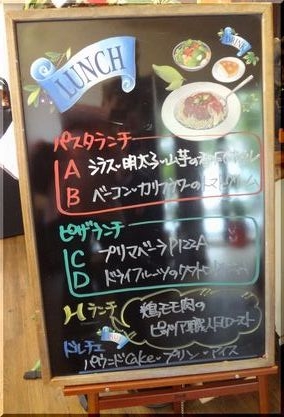 LUNCH
パスタランチ
A シラス・明太子・山芋の
B ベーコン・カリフラワーのトマトクリーム
ピザランチ
C プリマベーラPIZZA
D ドライフルーツの
Hランチ 鶏モモ肉の
ピッツァ職人風ロースト
ドルチェ
パウンドCake・プリン・アイス